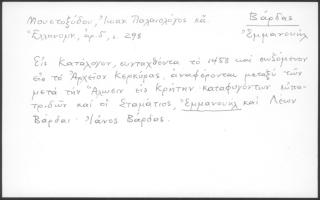 Μουστοξύδου, Ἰωαν. Παλαιολόγος κἄ.
Ἑλληνομν, ἀρ. 5, σ. 298
Βάρδας
Ἐμμανουήλ
Εἰς Κατάλογον, συνταχθέντα τὸ 1453 καὶ σωζόμενον
εἰς τὸ Ἀρχεῖον Κερκύρας, ἀναφέρονται μεταξὺ τῶν
μετὰ τὴν Ἅλωσιν εἰς Κρήτην καταφυγόντων εὐπα-
τριδῶν καὶ οἱ Σταμάτιος, Ἐμμανουὴλ καὶ Λέων
Βάρδαι· Ἰάνος Βάρδας.